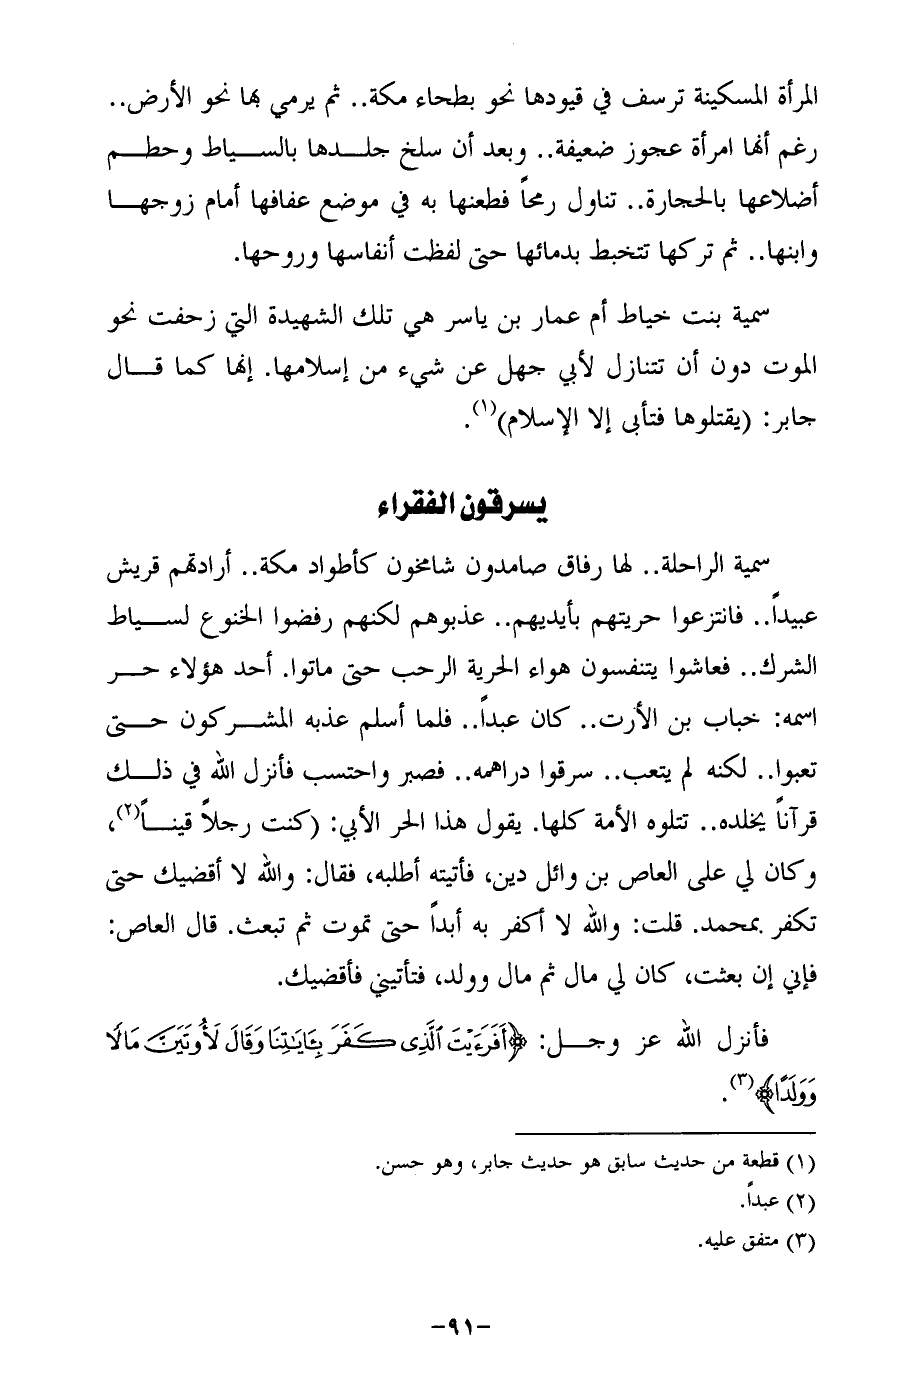 المرأة المسكينة ترسف في قيودها نحو بطحاء مكة.. ثم يرمي بها نحو الأرض..
رغم أنها امرأة عجوز ضعيفة.. وبعد أن سلخ جلدها بالسياط وحطم
أضلاعها بالحجارة.. تناول رمحاً فطعنها به في موضع عفافها أمام زوجها
وابنها.. ثم تركها تتخبط بدمائها حتى لفظت أنفاسها وروحها.
سمية بنت خياط أم عمار بن ياسر هي تلك الشهيدة التي زحفت نحو
الموت دون أن تتنازل لأبي جهل عن شيء من إسلامها. إنها كما قال
جابر: (يقتلوها فتأبى إلا الإسلام)(١).
يسرقون الفقراء
سمية الراحلة.. لها رفاق صامدون شامخون كأطواد مكة.. أرادتهم قريش
عبيداً.. فانتزعوا حريتهم بأيديهم.. عذبوهم لكنهم رفضوا الخنوع لسياط
الشرك.. فعاشوا يتنفسون هواء الحرية الرحب حتى ماتوا. أحد هؤلاء حر
اسمه: خباب بن الأرت.. كان عبداً.. فلما أسلم عذبه المشركون حتى
تعبوا.. لكنه لم يتعب.. سرقوا دراهمه.. فصبر واحتسب فأنزل الله في ذلك
قرآناً يخلده.. تتلوه الأمة كلها. يقول هذا الحر الأبي: (كنت رجلاً قيناً(٢)،
وكان لي على العاص بن وائل دين، فأتيته أطلبه، فقال: والله لا أقضيك حتى
تكفر بمحمد. قلت: والله لا أكفر به أبداً حتى تموت ثم تبعث. قال العاص:
فإني إن بعثت، كان لي مال ثم مال وولد، فتأتيني فأقضيك.
فأنزل الله عز وجل: ﴿أَفَرَءَيْتَ ٱلَّذِى كَفَرَ بِـَٔايَـٰتِنَا وَقَالَ لَأُوتَيَنَّ مَالًا
وَوَلَدًا﴾(٣).
(١) قطعة من حديث سابق هو حديث جابر، وهو حسن.
(٢) عبداً.
(٣) متفق عليه.
-٩١-